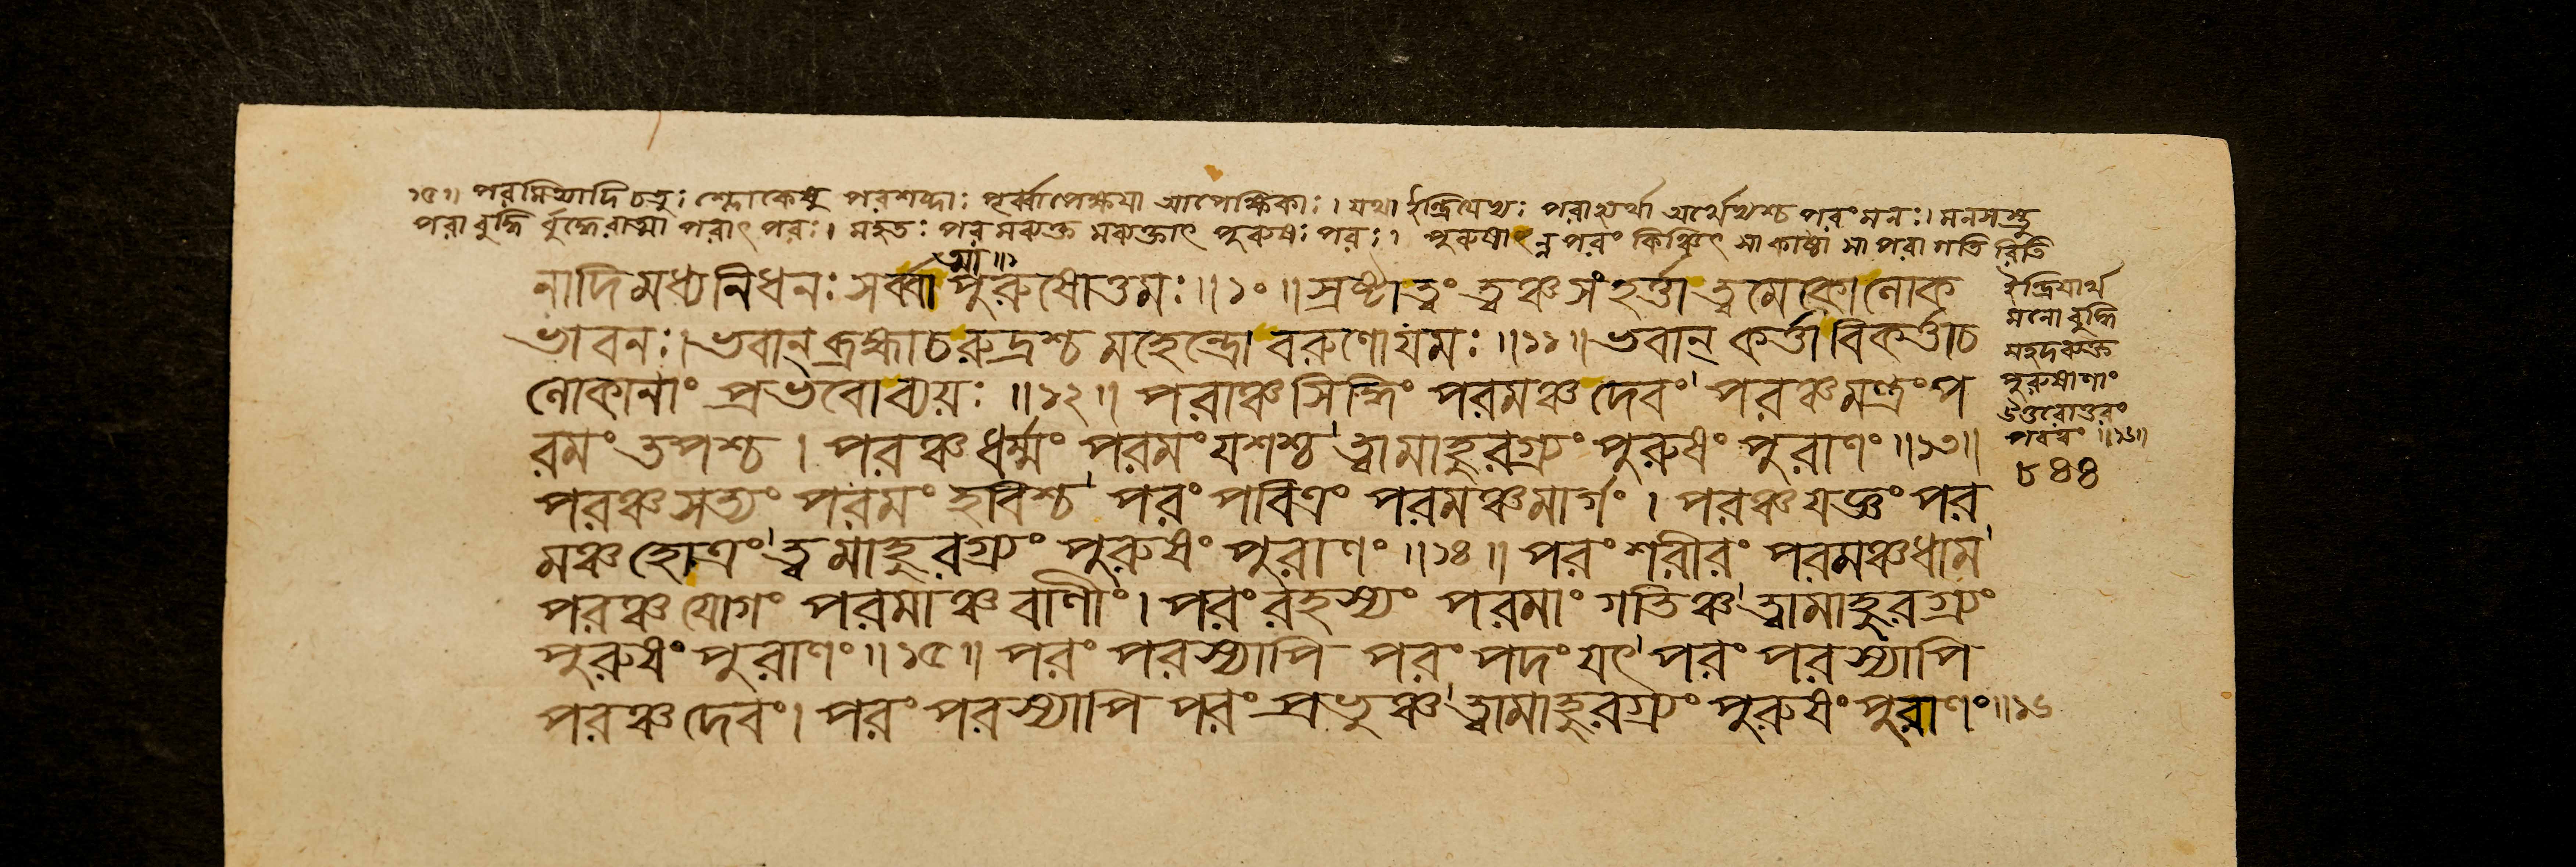 ১৫॥ পরমিত্যাদি চতুঃ শ্লোকেষু পরশব্দাঃ পূর্ব্বাপেক্ষয়া আপেক্ষিকাঃ। যথা ইন্দ্রিয়েভ্যঃ পরাহ্যর্থা অর্থেভ্যশ্চ পরং মনঃ। মনসস্তু
পরা বুদ্ধি র্বুদ্ধেরাত্মা পরাৎ পরঃ। মহতঃ পরমব্যক্ত মব্যক্তাৎ পুরুষঃ পরঃ। পুরুষাৎ ন্ন পরং কিঞ্চিৎ সা কাষ্ঠা সা পরা গতি রিতি
ত্মা॥১
নাদিমধ্যনিধনঃ সর্ব্বা পুরুষোত্তমঃ॥১০॥ স্রষ্টাত্বং ত্বঞ্চসংহর্ত্তা ত্বমেকোলোক
ভাবনঃ। ভবান্ ব্রহ্মাচরুদ্রশ্চ মহেন্দ্রো বরুণোযমঃ॥১১॥ ভবান্ কর্ত্তাবিকর্ত্তাচ
লোকানাং প্রভবোব্যয়ঃ॥১২॥ পরাঞ্চসিদ্ধিং পরমঞ্চদেবং' পরঞ্চমন্ত্রংপ
রমং তপশ্চ। পরঞ্চধর্ম্মং পরমংযশশ্চ' ত্বামাহুরগ্র্যং পুরুষং পুরাণং॥১৩॥
পরঞ্চসত্যং পরমং হবিশ্চ' পরং পবিত্রং পরমঞ্চমার্গং। পরঞ্চযজ্ঞং পর
মঞ্চহোত্রং' ত্বমাহুরগ্র্যং পুরুষং পুরাণং॥১৪॥ পরংশরীরং পরমঞ্চধাম'
পরঞ্চযোগং পরমাঞ্চবাণীং। পরংরহস্যং পরমাং গতিঞ্চ' ত্বামাহুরগ্র্যং
পুরুষং পুরাণং॥১৫॥ পরং পরস্যাপি পরং পদং যৎ' পরং পরস্যাপি
পরঞ্চদেবং। পরং পরস্যাপি পরং প্রভুঞ্চ' ত্বামাহুরগ্র্যং পুরুষং পুরাণং॥১৬
ইন্দ্রিয়ার্থ
মনোবুদ্ধি
মহদব্যক্ত
পুরুষাণাং
উত্তরোত্তরং
পরত্বং॥১৬॥
৮৪৪